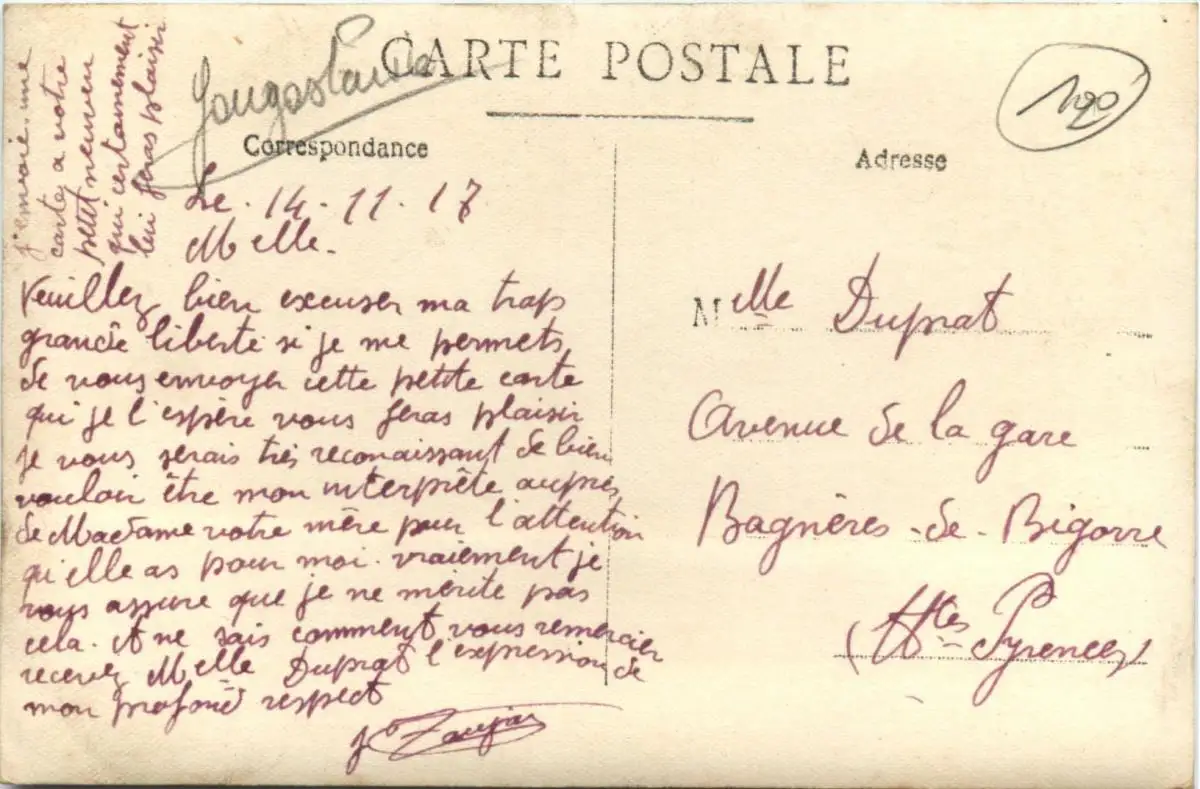 CARTE POSTALE
Correspondance
Adresse
120
j'envoie une
carte a votre
petit neuveu
qui certainement
lui feras plaisir
Le . 14 . 11 . 17
Melle.
Veuillez bien excuser ma trop
grande liberté si je me permets
de vous envoyer cette petite carte
qui je l'espère vous feras plaisir
je vous serais très reconaissant de bien
vouloir être mon interprète auprès
de Madame votre mère pour l'attention
qu'elle as pour moi. vraiement je
vous assure que je ne mérite pas
cela. et ne sais comment vous remercier
recevez Melle Duprat l'expression de
mon profond respect
Mlle Duprat
Avenue de la gare
Bagnères-de-Bigorre
(Htes Pyrenees)